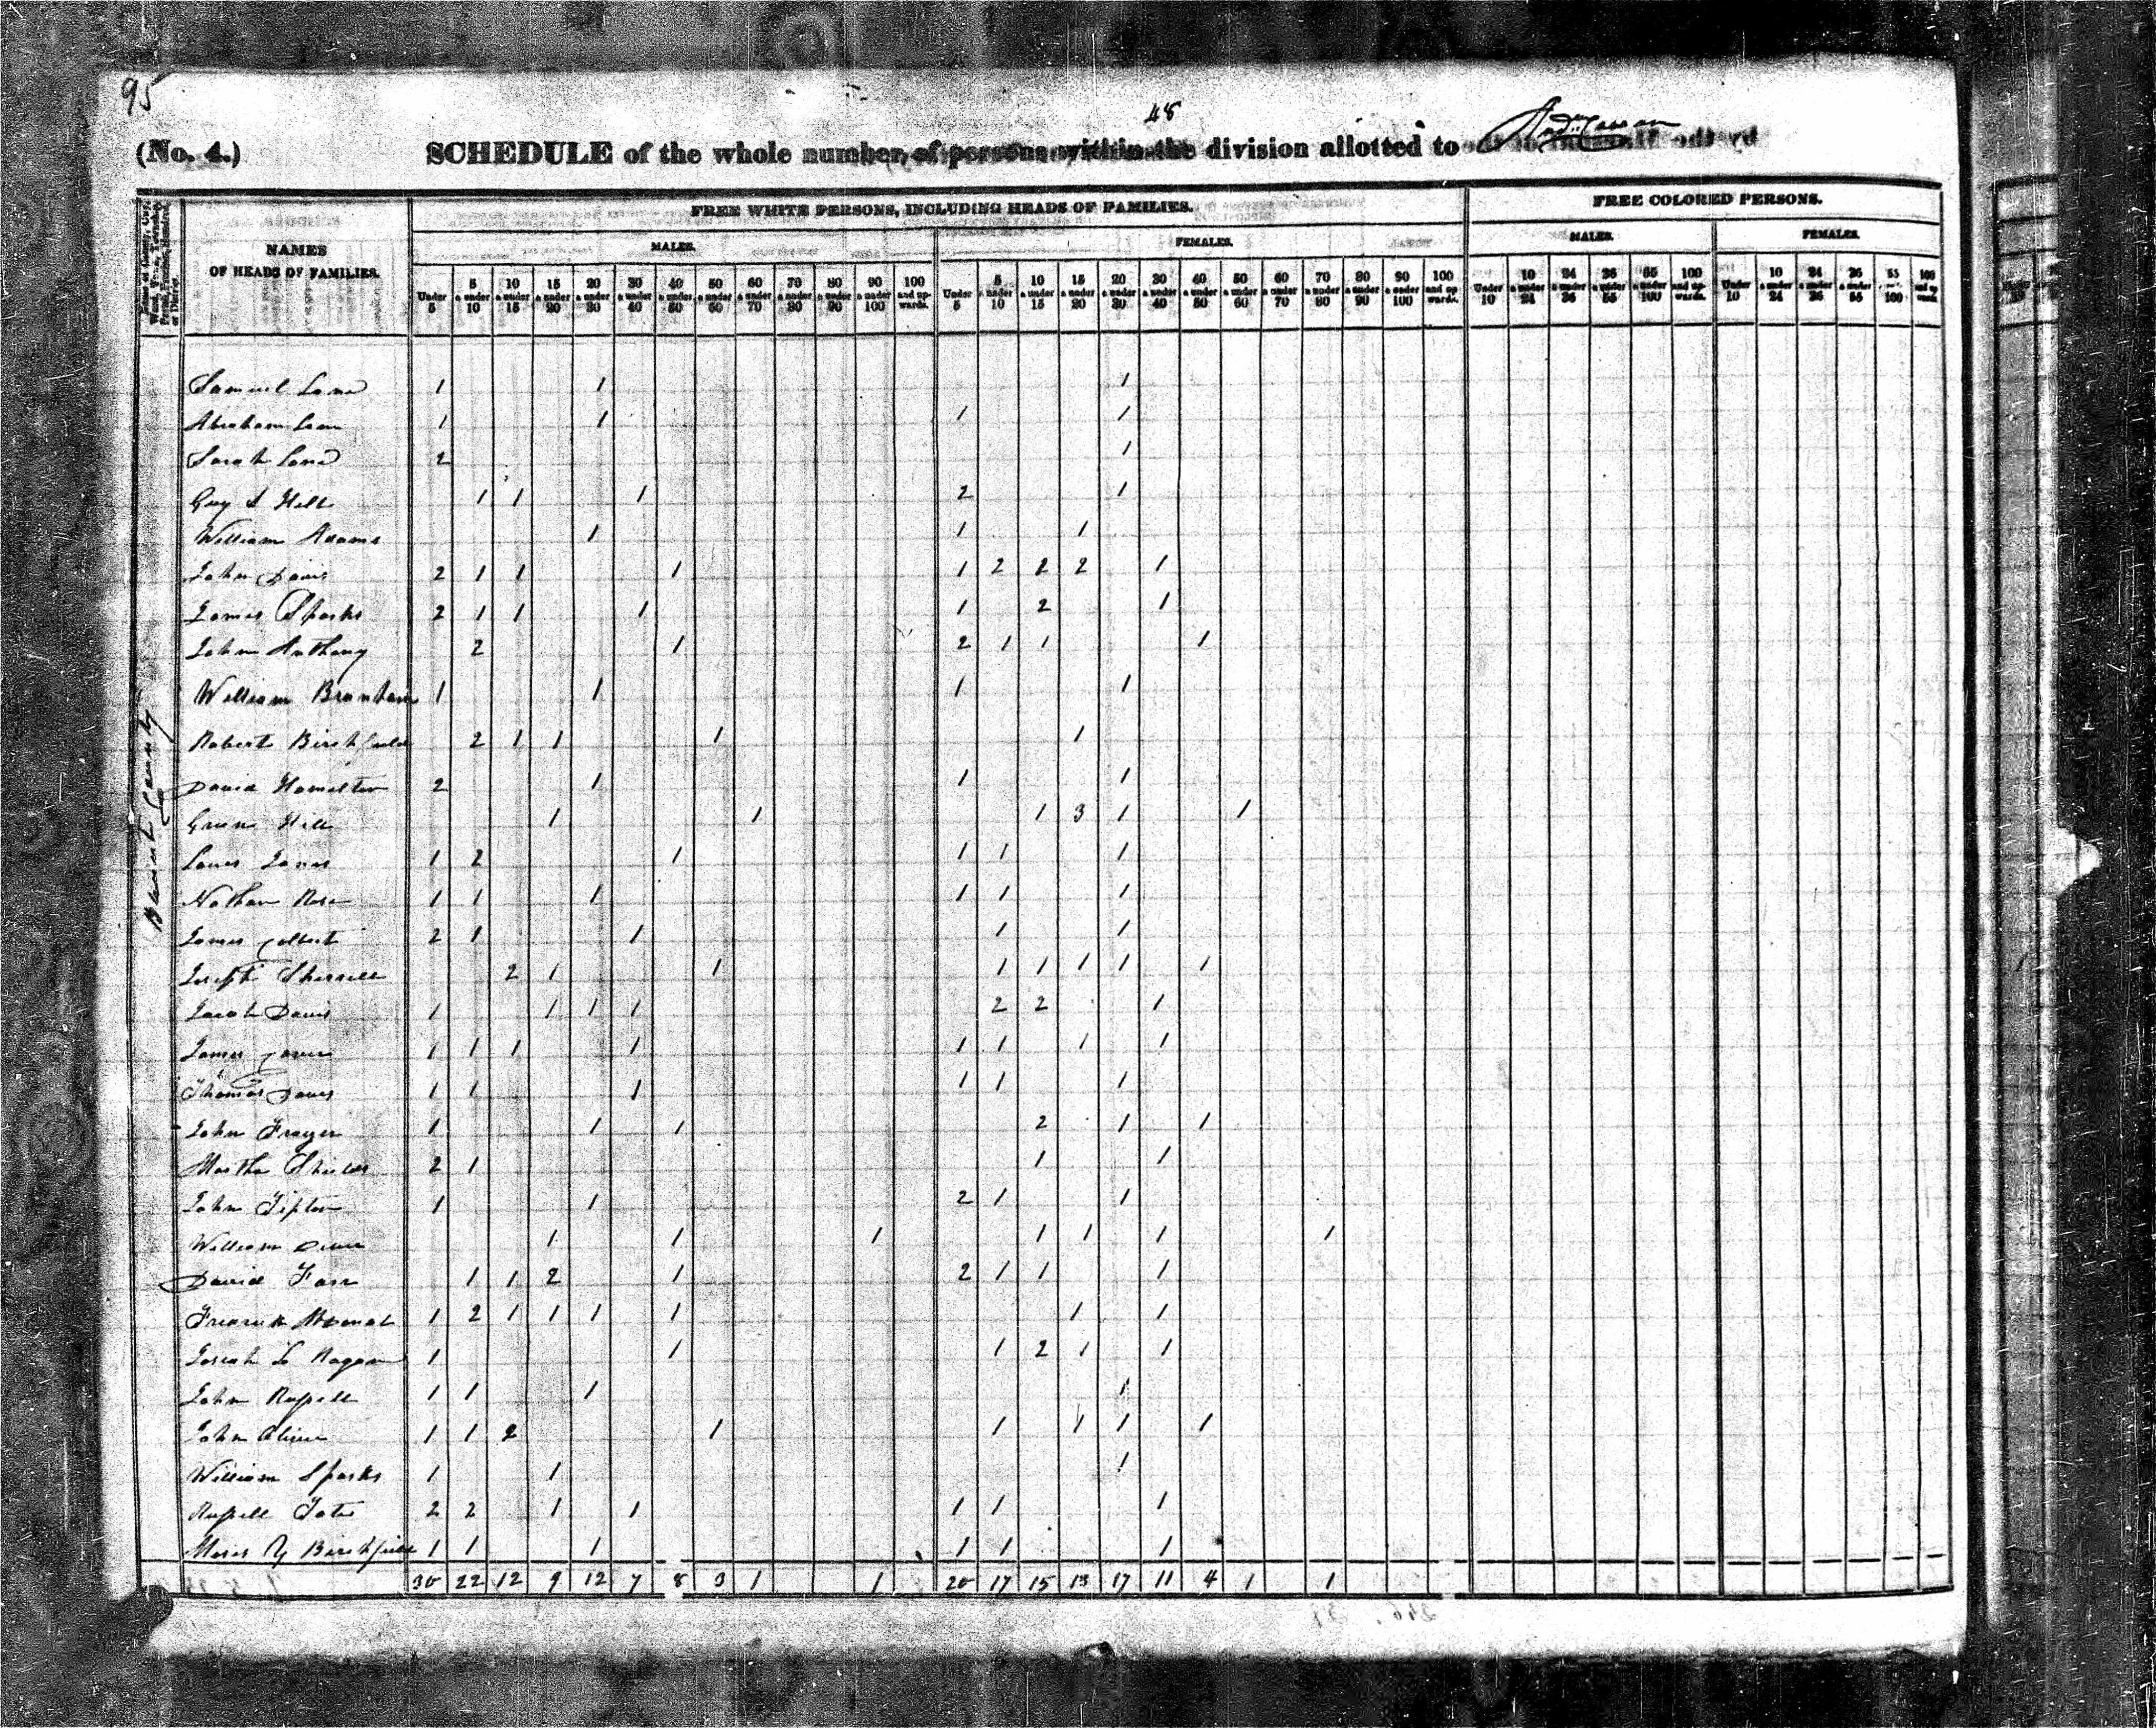 95
48
(No. 4.) SCHEDULE of the whole number of persons within the division allotted to
FREE WHITE PERSONS, INCLUDING HEADS OF FAMILIES. FREE COLORED PERSONS.
NAMES OF HEADS OF FAMILIES.
MALES. FEMALES. MALES. FEMALES.
Under 5 5 & under 10 10 & under 15 15 & under 20 20 & under 30 30 & under 40 40 & under 50 50 & under 60 60 & under 70 70 & under 80 80 & under 90 90 & under 100 100 and upwards. Under 5 5 & under 10 10 & under 15 15 & under 20 20 & under 30 30 & under 40 40 & under 50 50 & under 60 60 & under 70 70 & under 80 80 & under 90 90 & under 100 100 and upwards. Under 10 10 & under 24 24 & under 36 36 & under 55 55 & under 100 100 and upwards. Under 10 10 & under 24 24 & under 36 36 & under 55 55 100 100 and upwards.
Blount County
Samuel Lane 1 1 1
Abraham Lane 1 1 1 1
Sarah Lane 2 1
Guy S Hill 1 1 1 2 1
William Adams 1 1 1
John Davis 2 1 1 1 1 2 2 2 1
James Sparks 2 1 1 1 1 2 1
John Anthony 2 1 2 1 1 1
William Branham 1 1 1 1
Robert Birchfield 2 1 1 1 1
David Hamilton 2 1 1 1
Green Hill 1 1 1 3 1 1
James 1 2 1 1 1 1
Nathan Rose 1 1 1 1 1 1
James Colbert 2 1 1 1 1
Joseph Sherrell 2 1 1 1 1 1 1 1
Jacob Davis 1 1 1 1 2 2 1
James 1 1 1 1 1 1 1 1
Thomas Davis 1 1 1 1 1 1
John Frazer 1 1 1 2 1 1
Martha Shields 2 1 1 1
John Tipton 1 1 2 1 1
William 1 1 1 1 1 1 1
David Farr 1 1 2 1 2 1 1 1
Frederick 1 2 1 1 1 1 1 1
Josiah Ragan 1 1 1 2 1 1
John Russell 1 1 1 1
John Oliver 1 1 2 1 1 1 1 1
William Sparks 1 1 1
Russell Tate 2 2 1 1 1 1 1
Moses Y Birchfield 1 1 1 1 1 1
30 22 12 9 12 7 8 3 1 1 20 17 15 13 17 11 4 1 1